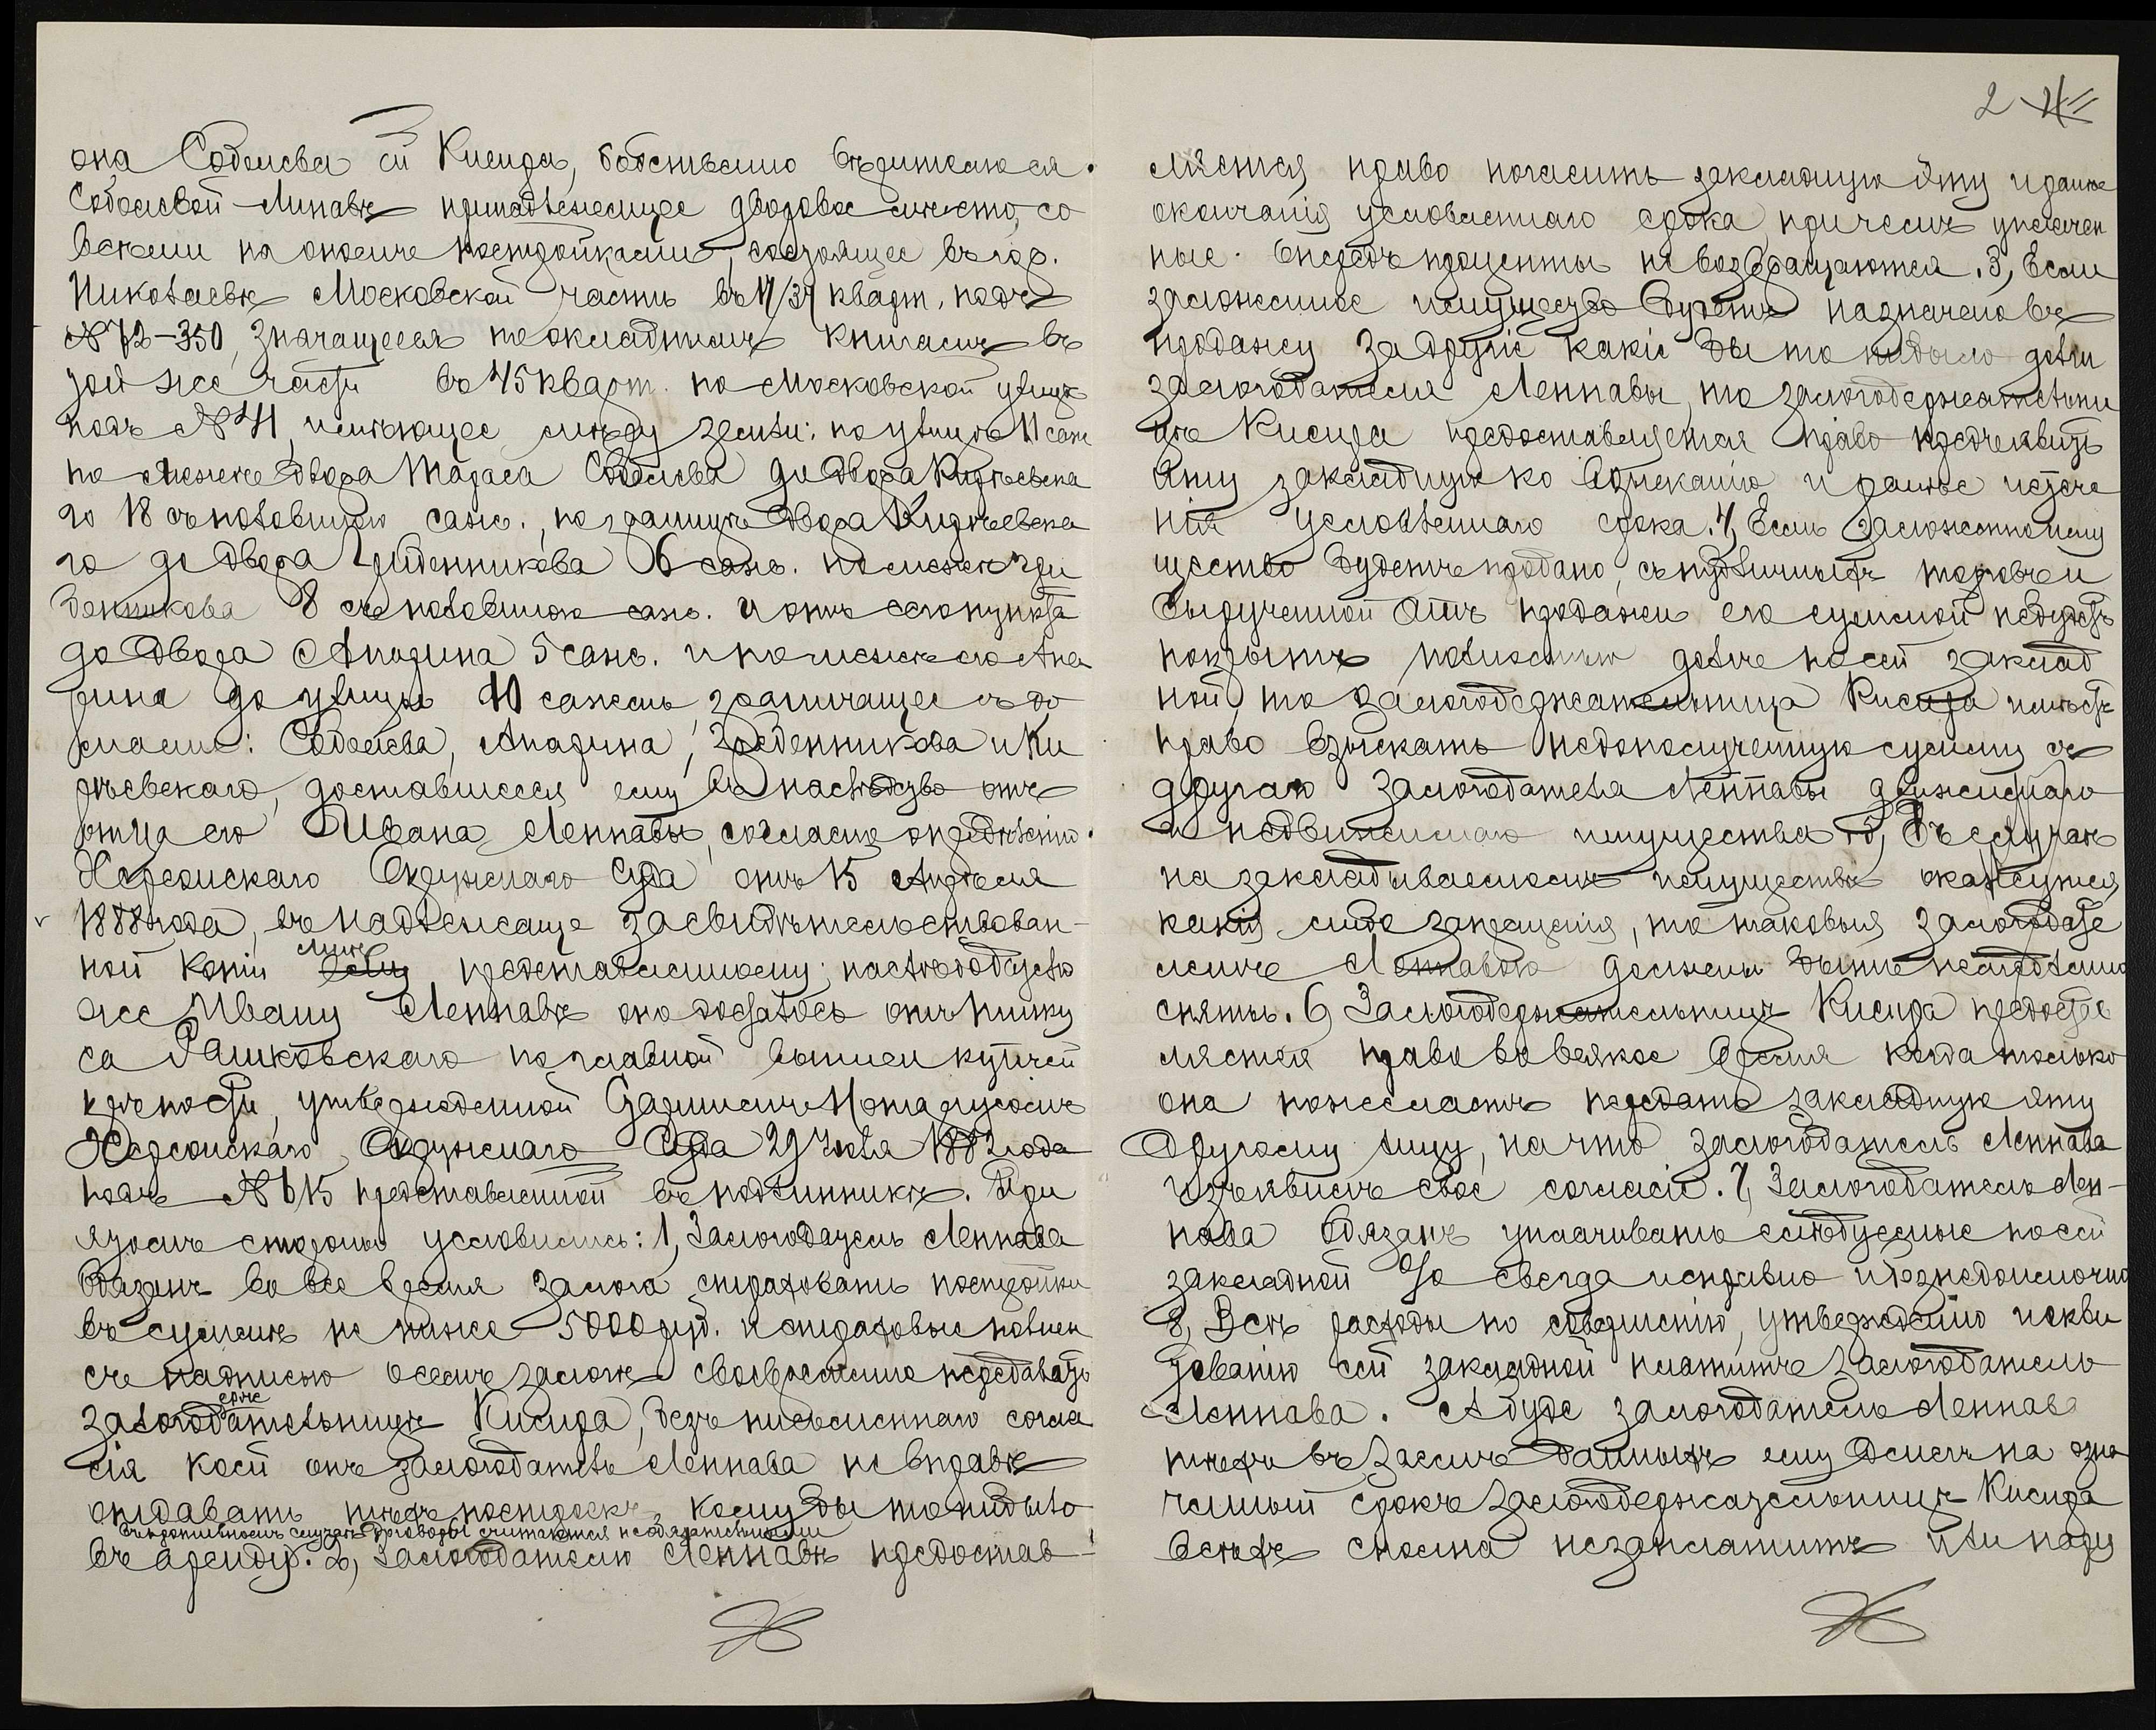 2
она Соболева ей Кисира, собственно
Соболевой Линавѣ принадлежащее дворовое мѣсто, со
всѣми на ономъ постройками, состоящее въ гор.
Николаевѣ Московской части въ 17/37 кварт. подъ
№ 72-350, значащееся по окладнымъ книгамъ въ
той же части въ 45 кварт. по Московской улицѣ
подъ № 41, имѣющее мѣру земли: по улицѣ 11 саж
по межѣ двора Тараса Соболева до двора Кирѣевска
го 18 съ половиною саж., по границѣ двора Кирѣевска
го до двора Гребенникова 6 саж. по межѣ Гре
бенникова 8 съ половиною саж. и отъ сего пункта
до двора Апарина 5 саж. и по межѣ его Апа
рина до улицы 10 сажень, граничащее съ до
мами: Соболева, Апарина, Гребенникова и Ки
рѣевскаго, доставшееся ему въ наслѣдство отъ
отца его Ивана Леннавы, согласно опредѣленію
Херсонскаго Окружнаго Суда отъ 15 Апрѣля
1888 года, въ надлежаще засвидѣтельствован-
ной копіи
мнѣ
ему представленному; наслѣдодателю
же Ивану Леннавѣ оно досталось отъ
Рашковскаго по главной выписи купчей
крѣпости, утвержденной Старшимъ Нотаріусомъ
Херсонскаго Окружнаго Суда 29 Іюля 1882 года
подъ № 615 представленной въ подлинникѣ. При
этомъ стороны условились: 1, Залогодатель Леннава
обязанъ во все время залога страховать постройки
въ суммѣ не ниже 5000 руб. и страховые полисы
съ надписью о семъ залогѣ своевременно передавать
держ
залогодательницѣ Кисира, безъ письменнаго согла
сія коей онъ залогодатель Леннава не вправѣ
отдавать тѣхъ построекъ кому бы то ни было
въ противномъ случаѣ договоры считаются необязательными
въ аренду. 2, Залогодателю Леннавѣ предостав-
ляется право погасить закладную эту и ранѣе
окончанія условленнаго срока, причемъ уплачен
ные впередъ проценты не возвращаются. 3, Если
заложенное имущество будетъ назначено въ
продажу за другіе какіе бы то ни было долги
залогодателя Леннавы, то залогодержательни
цѣ Кисира предоставляется право предъявить
эту закладную ко взысканію и ранѣе истече
нія условленнаго срока. 4, Если заложенное иму
щество будетъ продано съ публичныхъ торговъ и
вырученной отъ продажи его суммой не будетъ
покрытъ полностью долгъ по сей заклад
ной, то залогодержательница Кисира имѣетъ
право взыскать недополученную сумму съ
другого залогодателя Леннавы движимаго
и недвижимаго имущества. 5, Въ случаѣ
на закладываемомъ имуществѣ окажутся
какія либо запрещенія, то таковыя залогодате
лемъ Леннавою должны быть немедленно
сняты. 6, Залогодержательницѣ Кисира предостав
ляется право во всякое время когда только
она пожелаетъ передать закладную эту
другому лицу, на что залогодатель Леннава
изъявилъ свое согласіе. 7, Залогодатель Лен-
нава обязанъ уплачивать слѣдуемые по сей
закладной %% всегда исправно и безнедоимочно
8, Всѣ расходы по совершенію, утвержденію и ликви
дованію сей закладной платитъ залогодатель
Леннава. А буде залогодатель Леннава
тѣхъ въ заемъ данныхъ ему денегъ на озна
ченный срокъ залогодержательницѣ Кисира
всѣхъ сполна незаплатитъ или нару